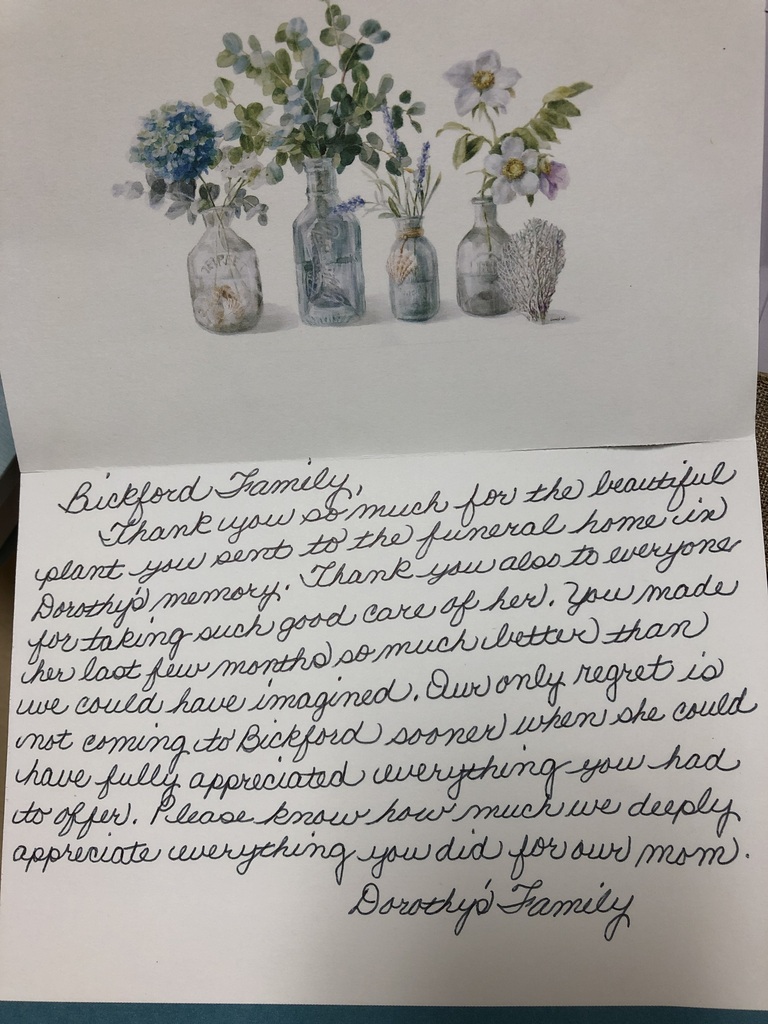 Bickford Family,
Thank you so much for the beautiful
plant you sent to the funeral home in
Dorothy's memory. Thank you also to everyone
for taking such good care of her. You made
her last few months so much better than
we could have imagined. Our only regret is
not coming to Bickford sooner when she could
have fully appreciated everything you had
to offer. Please know how much we deeply
appreciate everything you did for our mom.
Dorothy's Family